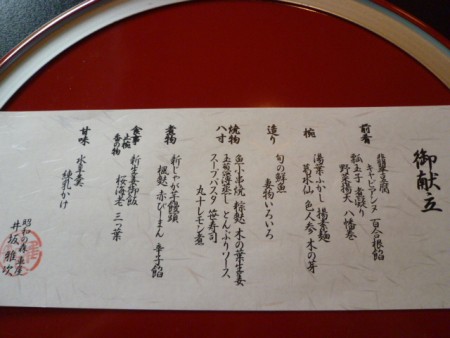 御献立
前肴
翡翠豆腐
キャビア 百合根餡
粽玉子 煮凝り
野菜揚天 八幡巻
椀
湯葉ふかし 揚素麺
葛水仙 色人参 木の芽
造り
旬の鮮魚
妻物いろいろ
焼物
八寸
魚小串焼 粽麩 木の葉生姜
スープパスタ 笹寿司
丸十レモン煮
煮物
新じゃが芋饅頭
楓麩 赤ぴーまん 辛子餡
食事
止椀
香の物
新生姜御飯
桜海老 三つ葉
甘味
水羊羹
練乳かけ
昭和の森 車屋
井坂 雅次